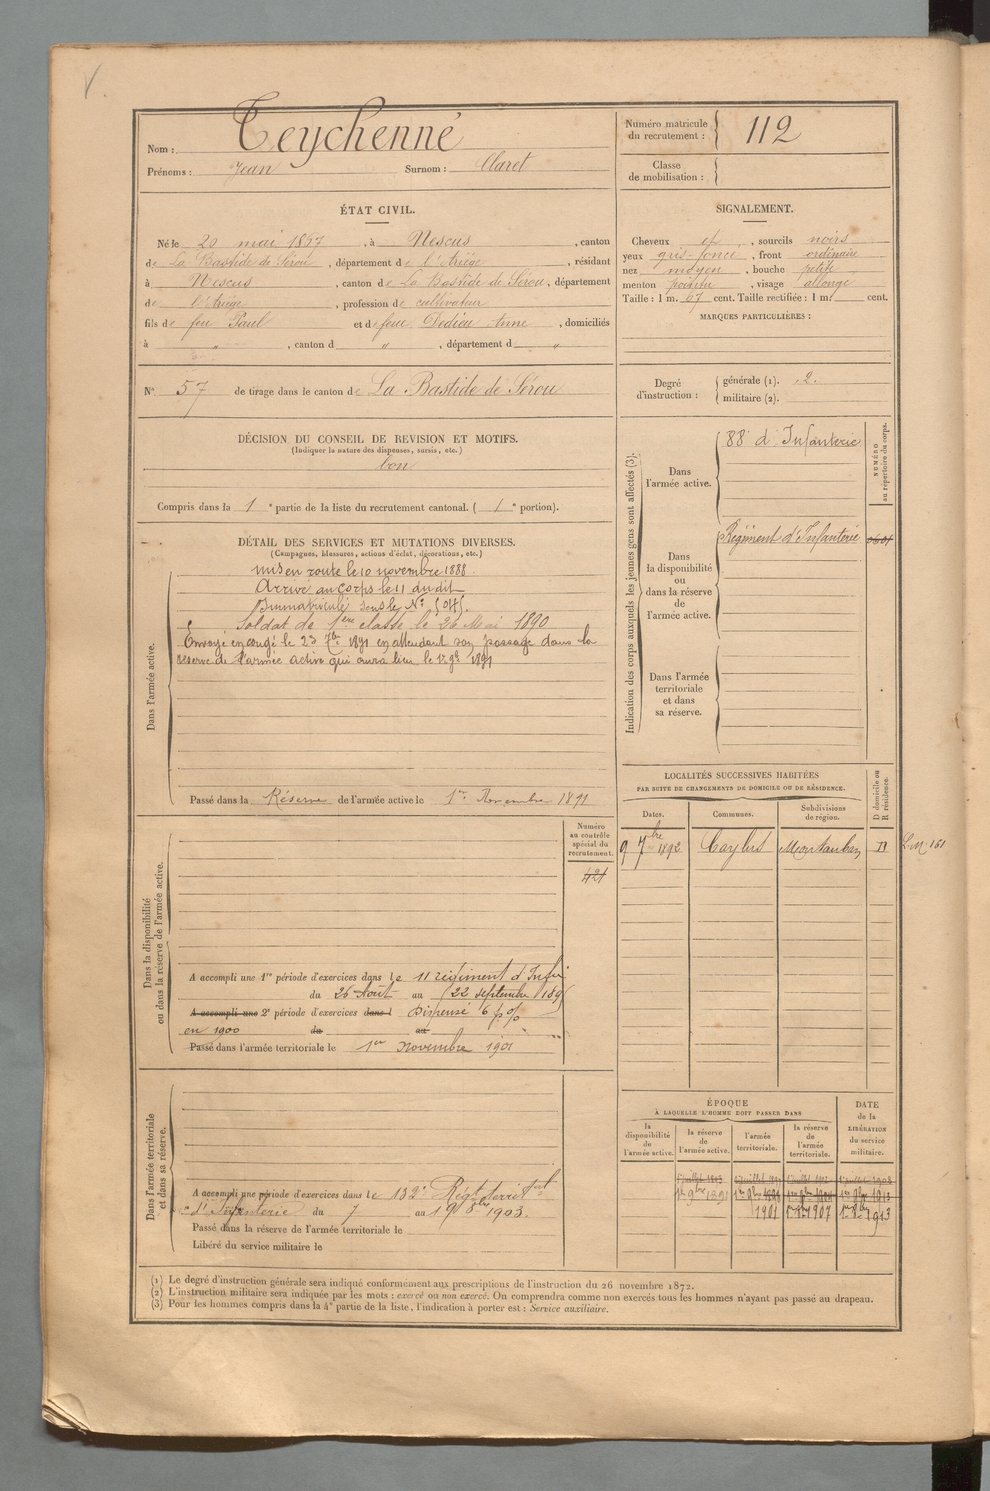 V.
Nom : Teychenné
Prénoms : Jean Surnom : Claret
Numéro matricule du recrutement : 112
Classe de mobilisation :
ÉTAT CIVIL.
Né le 20 mai 1867, à Nescus, canton
de La Bastide de Sérou, département de l'Ariège, résidant
à Nescus, canton de La Bastide de Sérou, département
de l'Ariège, profession de cultivateur
fils de feu Paul et de feue Dedieu Anne, domiciliés
à " , canton d " , département d "
N° 57 de tirage dans le canton de La Bastide de Sérou
SIGNALEMENT.
Cheveux et , sourcils noirs
yeux gris-foncé , front ordinaire
nez moyen , bouche petite
menton pointu , visage allongé
Taille : 1 m. 67 cent. Taille rectifiée : 1 m. cent.
MARQUES PARTICULIÈRES :
Degré d'instruction : générale (1). 2.
militaire (2).
DÉCISION DU CONSEIL DE REVISION ET MOTIFS.
(Indiquer la nature des dispenses, sursis, etc.)
bon
Compris dans la 1e partie de la liste du recrutement cantonal. ( 1e portion).
DÉTAIL DES SERVICES ET MUTATIONS DIVERSES.
(Campagnes, blessures, actions d'éclat, décorations, etc.)
Dans l'armée active.
mis en route le 10 novembre 1888
Arrivé au corps le 11 du dit
Immatriculé sous le N°
Soldat de 1ère classe le 26 Mai 1890
Envoyé en congé le 23 7bre 1891 en attendant son passage dans la
réserve de l'armée active qui aura lieu le 1er 9bre 1891
Passé dans la Réserve de l'armée active le 1er Novembre 1891
Indication des corps auxquels les jeunes gens sont affectés (3).
Dans l'armée active.
88e d'Infanterie
NUMÉRO au répertoire du corps.
Dans la disponibilité ou dans la réserve de l'armée active.
Régiment d'Infanterie
Dans l'armée territoriale et dans sa réserve.
Dans la disponibilité ou dans la réserve de l'armée active.
Numéro au contrôle spécial du recrutement.
421
A accompli une 1re période d'exercices dans le 11 régiment d'Infie
du 26 Août au 22 septembre 189
A accompli une 2e période d'exercices dans l Dispensé 6 p %
en 1900 du au "
Passé dans l'armée territoriale le 1er novembre 1901
LOCALITÉS SUCCESSIVES HABITÉES
PAR SUITE DE CHANGEMENTS DE DOMICILE OU DE RÉSIDENCE.
Dates. Communes. Subdivisions de région. D domicile ou R résidence.
9 7bre 1892 Caylus Montauban D
Dans l'armée territoriale et dans sa réserve.
A accompli une période d'exercices dans le 132e Régt territal
d'Infanterie du 7 au 19 8bre 1903.
Passé dans la réserve de l'armée territoriale le
Libéré du service militaire le
ÉPOQUE
À LAQUELLE L'HOMME DOIT PASSER DANS
la disponibilité de l'armée active. la réserve de l'armée active. l'armée territoriale. la réserve de l'armée territoriale.
DATE de la LIBÉRATION du service militaire.
1er 9bre 1891 1er 9bre 1898 1er 9bre 1904 1er 9bre 1913
1901 1907 1913
(1) Le degré d'instruction générale sera indiqué conformément aux prescriptions de l'instruction du 26 novembre 1872.
(2) L'instruction militaire sera indiquée par les mots : exercé ou non exercé. On comprendra comme non exercés tous les hommes n'ayant pas passé au drapeau.
(3) Pour les hommes compris dans la 4e partie de la liste, l'indication à porter est : Service auxiliaire.